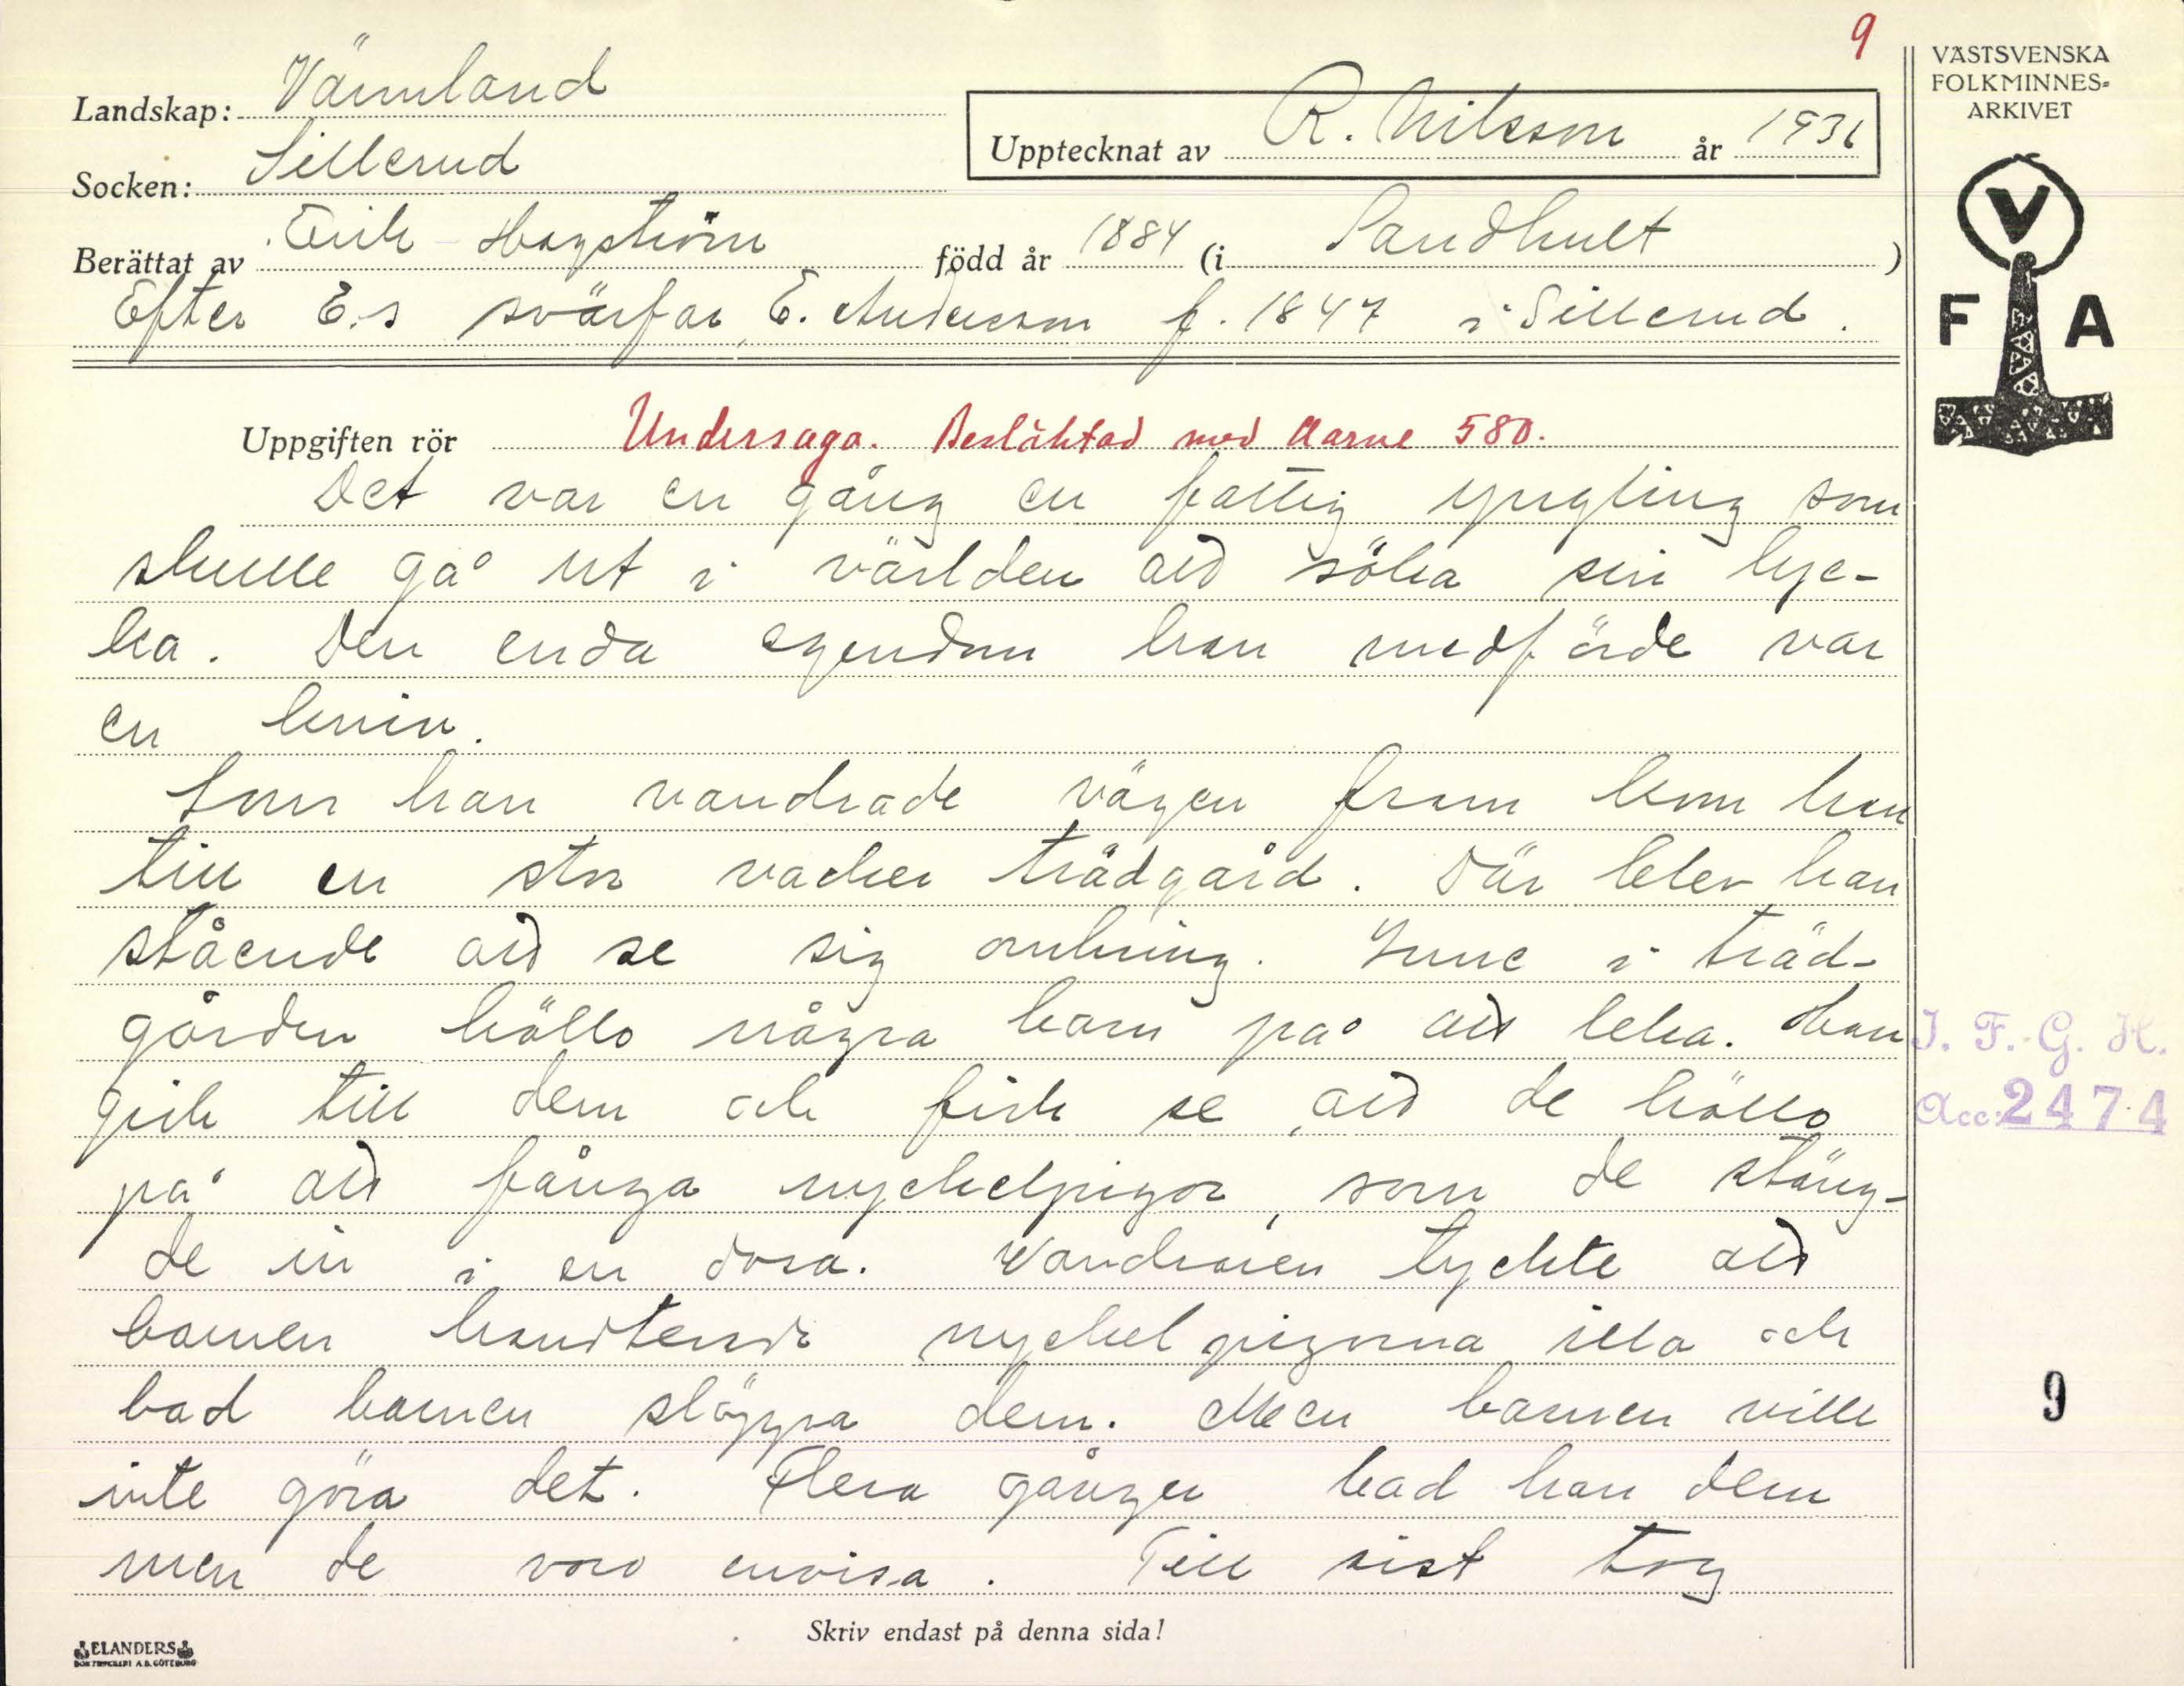 9
VÄSTSVENSKA
FOLKMINNES-
ARKIVET
Landskap: Värmland
Upptecknat av R. Nilsson år 1931
Socken: Sillerud
Berättat av Erik Hagström född år 1884 (i Sandhult )
Efter E:s svärfar, E. Andersson f. 1847 i Sillerud.
V
F A
Uppgiften rör Undersaga. Besläktad med Aarne 580.
Det var en gång en fattig yngling som
skulle gå ut i världen att söka sin lyc-
ka. Den enda egendom han medförde var
en kniv.
Som han vandrade vägen fram kom han
till en stor vacker trädgård. Där blev han
stående att se sig omkring. Inne i träd-
gården höllo några barn på att leka. Han
gick till dem och fick se att de höllo
på att fånga nyckelpigor, som de stäng-
de in i en dosa. Vandraren tyckte att
barnen handterade nyckelpigorna illa och
bad barnen släppa dem. Men barnen ville
inte göra det. Flera gånger bad han dem
men de voro envisa. Till sist tog
I. F. G. H.
Acc: 2474
9
Skriv endast på denna sida!
ELANDERS
BOKTRYCKERI A.B. GÖTEBORG